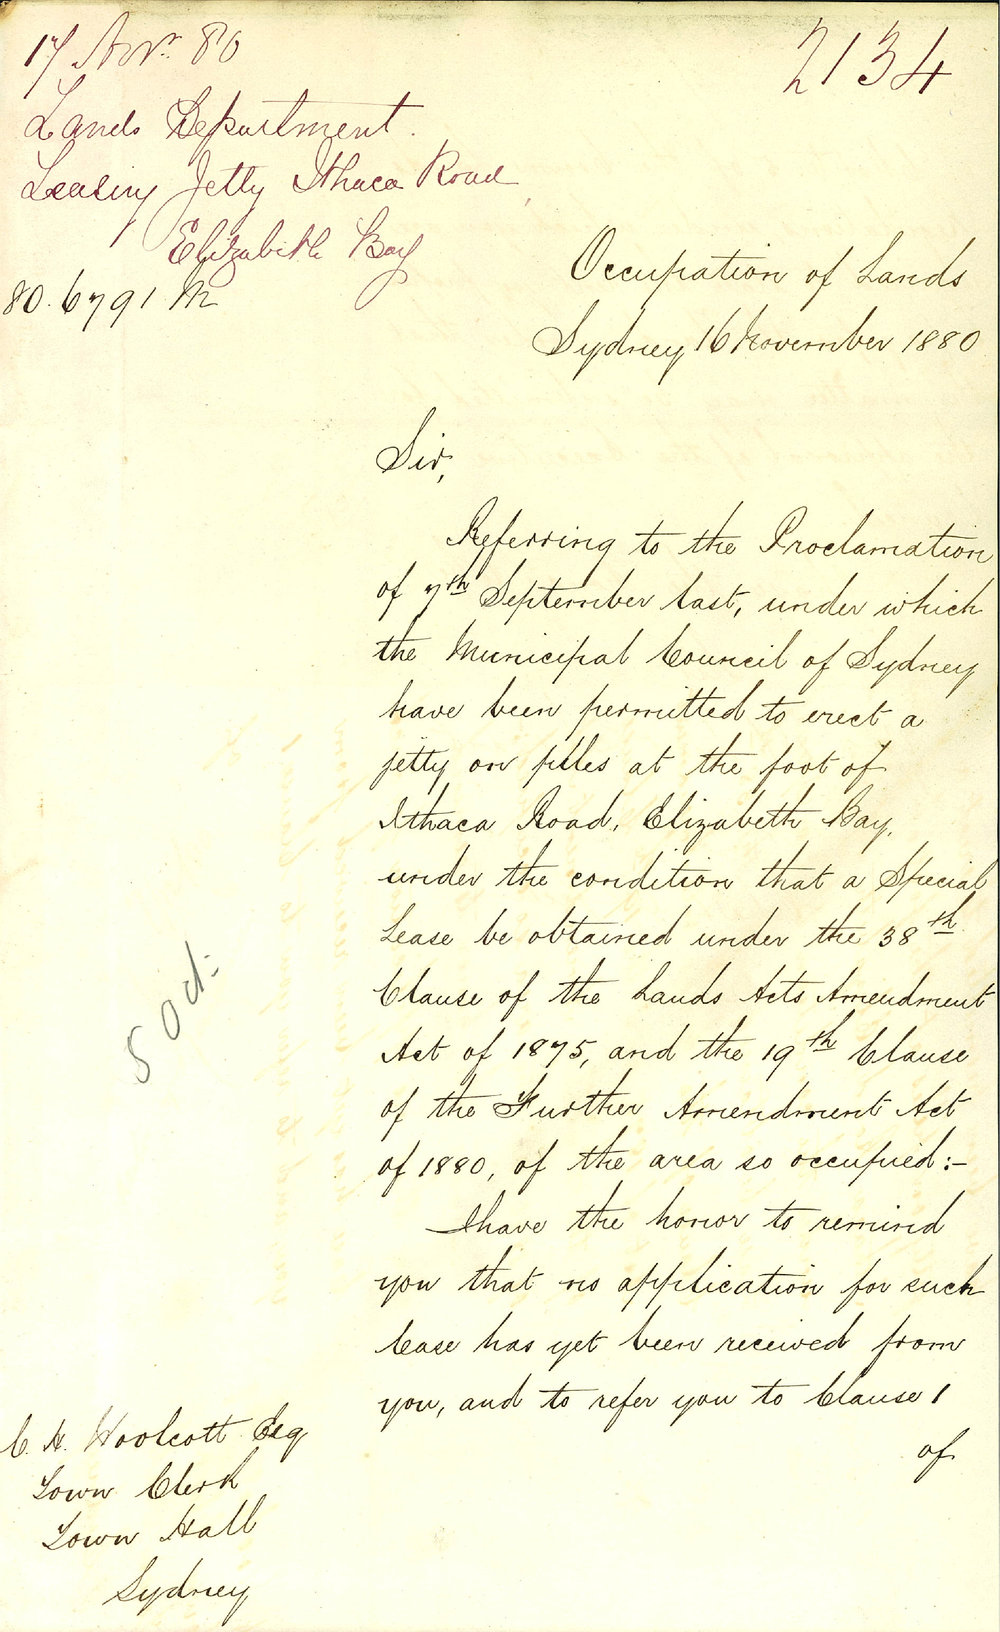 17 Novr. 80
2134
Lands Department.
Leasing Jetty Ithaca Road
Elizabeth Bay
80.6791 M
Occupation of Lands
Sydney 16 November 1880
Sir,
Referring to the Proclamation
of 7th September last, under which
the Municipal Council of Sydney
have been permitted to erect a
jetty on piles at the foot of
Ithaca Road, Elizabeth Bay,
under the condition that a Special
Lease be obtained under the 38th
Clause of the Lands Acts Amendment
Act of 1875, and the 19th Clause
of the Further Amendment Act
of 1880, of the area so occupied:-
I have the honor to remind
you that no application for such
lease has yet been received from
you, and to refer you to Clause 1
of
C. H. Woolcott Esq
Town Clerk
Town Hall
Sydney